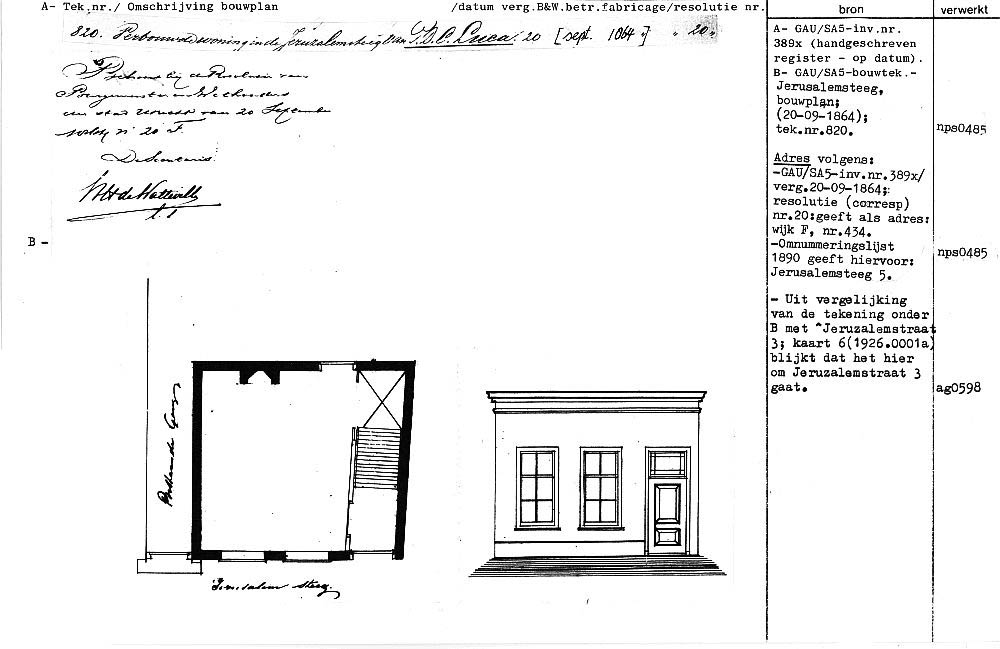 A- Tek.nr./ Omschrijving bouwplan /datum verg.B&W.betr.fabricage/resolutie nr.
820. Verbouwde woning in de Jeruzalemsteeg van 20 [sept. 1864] " 20"
Behoort bij de Resolutie van
Burgemeester en Wethouders
der stad Utrecht van 20 September
no 20 F.
De Secretaris
B -
Jerusalem steeg.
bron
A- GAU/SA5-inv.nr.
389x (handgeschreven
register - op datum).
B- GAU/SA5-bouwtek.-
Jerusalemsteeg,
bouwplan;
(20-09-1864);
tek.nr.820.
Adres volgens:
-GAU/SA5-inv.nr.389x/
verg.20-09-1864;
resolutie (corresp)
nr.20:geeft als adres:
wijk F, nr.434.
-Omnummeringslijst
1890 geeft hiervoor:
Jerusalemsteeg 5.
- Uit vergelijking
van de tekening onder
B met "Jeruzalemstraat
3; kaart 6(1926.0001a)
blijkt dat het hier
om Jeruzalemstraat 3
gaat.
verwerkt
nps0485
nps0485
ag0598